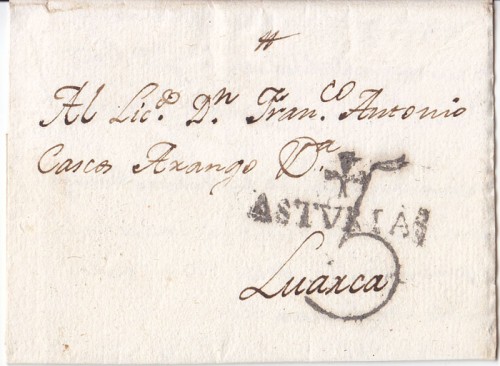 Al Lic.do D.n Fran.co Antonio
Cascos Arango V.a
5
ASTVRIAS
Luarca